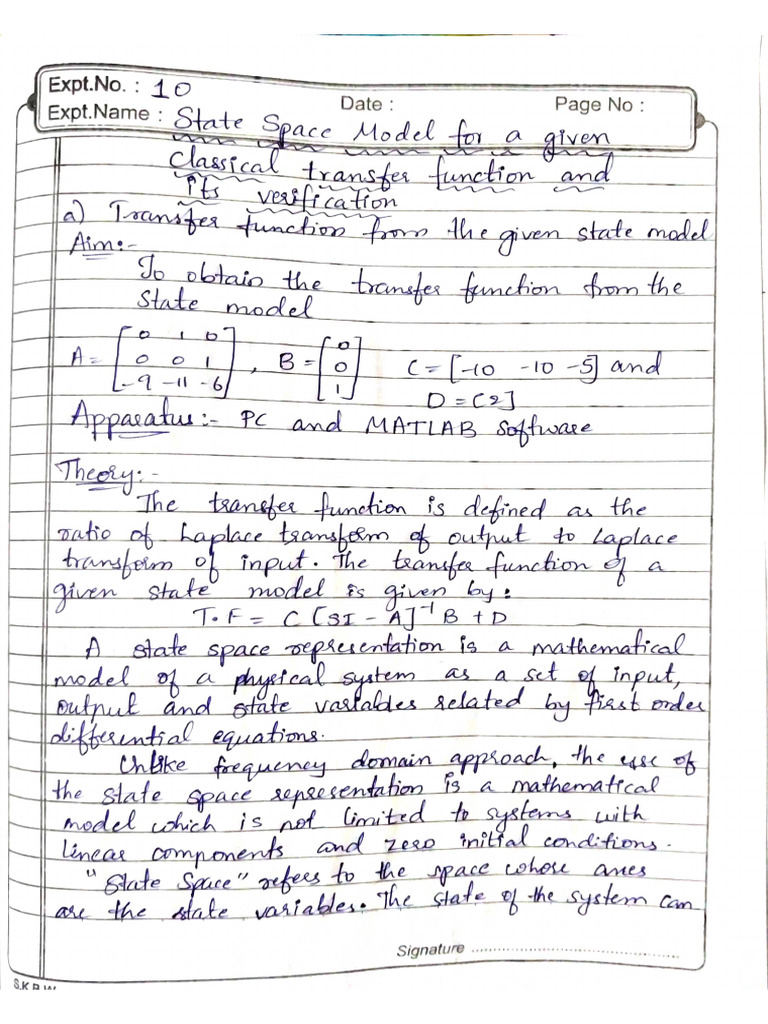 Expt.No. : 10
Date :
Page No :
Expt.Name : State Space Model for a given
Classical transfer function and
its verification
a) Transfer function from the given state model
Aim:-
To obtain the transfer function from the
State model
A = [0 1 0
0 0 1
-9 -11 -6], B = [0
0
1] C = [-10 -10 -5] and
D = [2]
Apparatus:- PC and MATLAB Software
Theory:-
The transfer function is defined as the
ratio of Laplace transform of output to Laplace
transform of input. The transfer function of a
given state model is given by:
T.F = C [SI - A]⁻¹ B + D
A state space representation is a mathematical
model of a physical system as a set of input,
output and state variables related by first order
differential equations.
Unlike frequency domain approach, the use of
the state space representation is a mathematical
model which is not limited to systems with
linear components and zero initial conditions.
"State Space" refers to the space whose axes
are the state variables. The state of the system can
Signature
S.K.B.W